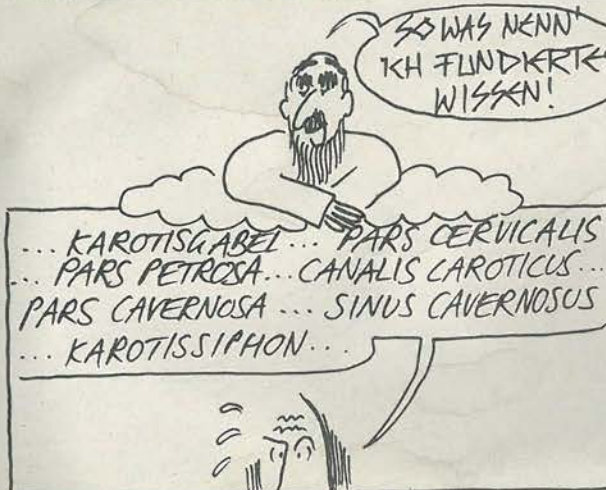 SO WAS NENN'
ICH FUNDIERTES
WISSEN!
... KAROTISGABEL ... PARS CERVICALIS
... PARS PETROSA ... CANALIS CAROTICUS ...
PARS CAVERNOSA ... SINUS CAVERNOSUS
... KAROTISSIPHON ...